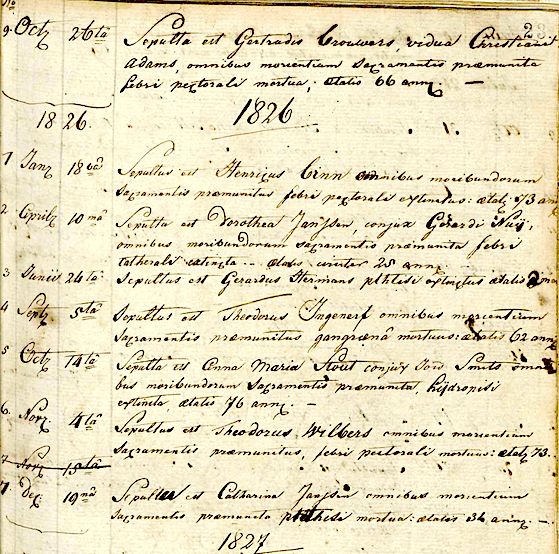 9 Octz 26ta Sepulta est Gertrudis Brouwers, vidua Christiani
Adams, omnibus morientium sacramentis præmunita
febri pectorali mortua; ætatis 66 annz. —
1826. 1826
1 Janz 18va Sepultus est Henricus omnibus moribundorum
sacramentis præmunitus febri pectorali extinctus: ætatz 73 an
2 Aprilz 10ma Sepulta est Dorothea Janssen, conjux Gerardi Nuij,
omnibus moribundorum sacramentis præmunita febri
catherali extincta — ætatis circiter 25 annz —
3 Junii 24ta Sepultus est Gerardus Hermans phthesi extinctus ætatis
4 Septz 5ta Sepultus est Theodorus Ingenerf omnibus morientium
sacramentis præmunitus gangrænâ mortuus: ætatis 62 annz
5 Octz 14ta Sepulta est Anna Maria Stout conjux Smits omni
bus moribundorum sacramentis præmunita, hijdropisi
extincta, ætatis 76 annz. —
6 Novz 4ta Sepultus est Theodorus Wilbers omnibus morientium
sacramentis præmunitus, febri pectorali mortuus: ætatz 73.
7 Novz 15ta
7 Dec 19na Sepulta est Catharina Janssen omnibus morientium
sacramentis præmunita phthesi mortua: ætatis 36 annz. —
1827